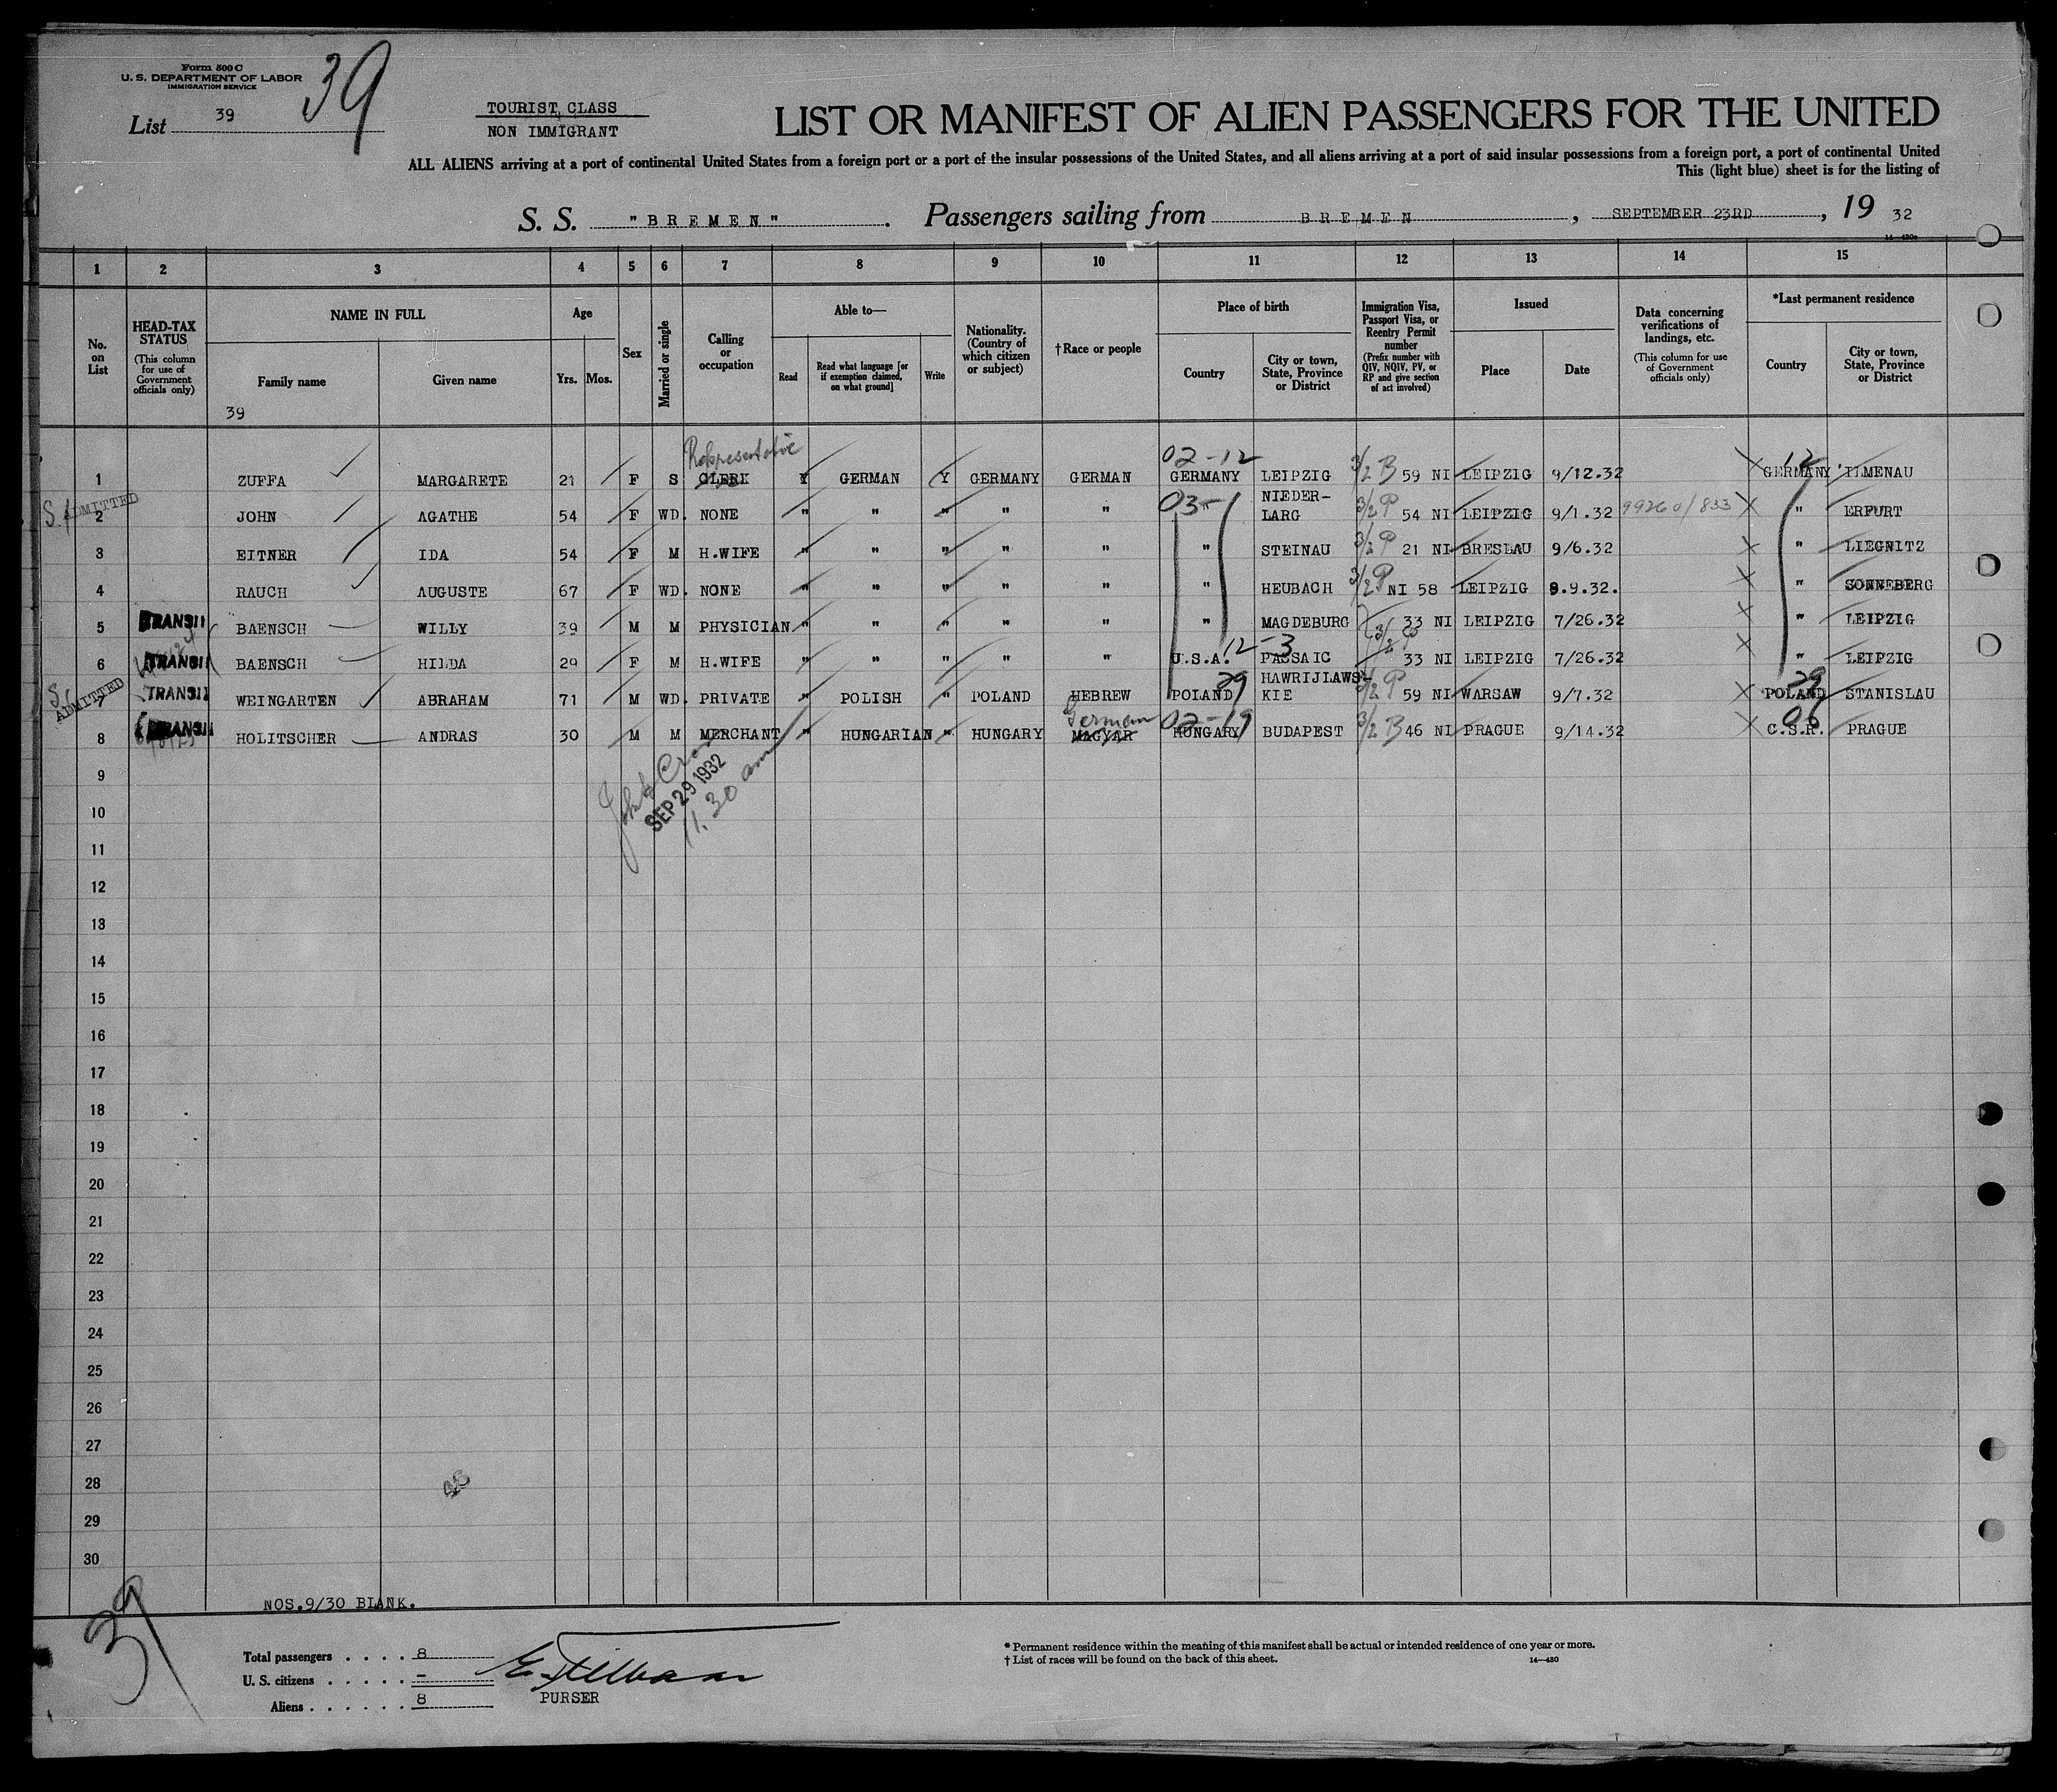 Form 500 C
U. S. DEPARTMENT OF LABOR
IMMIGRATION SERVICE
39
List 39
TOURIST CLASS
NON IMMIGRANT
LIST OR MANIFEST OF ALIEN PASSENGERS FOR THE UNITED
ALL ALIENS arriving at a port of continental United States from a foreign port or a port of the insular possessions of the United States, and all aliens arriving at a port of said insular possessions from a foreign port, a port of continental United
This (light blue) sheet is for the listing of
S. S. "BREMEN". Passengers sailing from BREMEN, SEPTEMBER 23RD, 19 32
1 2 3 4 5 6 7 8 9 10 11 12 13 14 15
No. on List
HEAD-TAX STATUS
(This column for use of Government officials only)
NAME IN FULL
Family name
Given name
39
Age
Yrs. Mos.
Sex
Married or single
Calling or occupation
Able to—
Read
Read what language [or if exemption claimed, on what ground]
Write
Nationality. (Country of which citizen or subject)
†Race or people
Place of birth
Country
City or town, State, Province or District
Immigration Visa, Passport Visa, or Reentry Permit number
(Prefix number with QIV, NQIV, PV, or RP and give section of act involved)
Issued
Place
Date
Data concerning verifications of landings, etc.
(This column for use of Government officials only)
*Last permanent residence
Country
City or town, State, Province or District
Representative 02-12 12
1 ZUFFA MARGARETE 21 F S CLERK Y GERMAN Y GERMANY GERMAN GERMANY LEIPZIG 3/2 B 59 NI LEIPZIG 9/12.32 GERMANY ILMENAU
ADMITTED
2 JOHN AGATHE 54 F WD. NONE " " " " " 03- " NIEDER-LARG 3/2 P 54 NI LEIPZIG 9/1.32 99260/833 " ERFURT
3 EITNER IDA 54 F M H.WIFE " " " " " " STEINAU 3/2 P 21 NI BRESLAU 9/6.32 " LIEGNITZ
4 RAUCH AUGUSTE 67 F WD. NONE " " " " " " HEUBACH 3/2 P NI 58 LEIPZIG 9.9.32. " SONNEBERG
5 TRANSIT BAENSCH WILLY 39 M M PHYSICIAN " " " " " " MAGDEBURG 33 NI LEIPZIG 7/26.32 " LEIPZIG
6 TRANSIT BAENSCH HILDA 29 F M H.WIFE " " " " " U.S.A. 12-3 PASSAIC 3/2 P 33 NI LEIPZIG 7/26.32 " LEIPZIG
ADMITTED
7 TRANSIT WEINGARTEN ABRAHAM 71 M WD. PRIVATE " POLISH " POLAND HEBREW POLAND 29 HAWRIJLAWS-KIE 3/2 P 59 NI WARSAW 9/7.32 POLAND 29 STANISLAU
German 02-19 06
8 TRANSIT HOLITSCHER ANDRAS 30 M M MERCHANT " HUNGARIAN " HUNGARY MAGYAR HUNGARY BUDAPEST 3/2 B 46 NI PRAGUE 9/14.32 C.S.R. PRAGUE
SEP 29 1932
11.30 am
9
10
11
12
13
14
15
16
17
18
19
20
21
22
23
24
25
26
27
28
29
30
NOS.9/30 BLANK.
39
Total passengers . . . . 8
U. S. citizens . . . . . –
Aliens . . . . . . 8
PURSER
* Permanent residence within the meaning of this manifest shall be actual or intended residence of one year or more.
† List of races will be found on the back of this sheet.
14—430